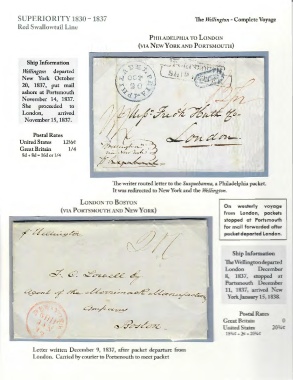 SUPERIORITY 1830 - 1837
Red Swallowtail Line
The Wellington - Complete Voyage
PHILADELPHIA TO LONDON
(VIA NEW YORK AND PORTSMOUTH)
Ship Information
Wellington departed
New York October
20, 1837, put mail
ashore at Portsmouth
November 14, 1837.
She proceeded to
London, arrived
November 15, 1837.
Postal Rates
United States 12½¢
Great Britain 1/4
8d + 8d = 16d or 1/4
London
The writer routed letter to the Susquehanna, a Philadelphia packet.
It was redirected to New York and the Wellington.
LONDON TO BOSTON
(VIA PORTSMOUTH AND NEW YORK)
On westerly voyage
from London, packets
stopped at Portsmouth
for mail forwarded after
packet departed London.
p Wellington
Boston
Ship Information
The Wellington departed
London December
8, 1837, stopped at
Portsmouth December
11, 1837, arrived New
York January 15, 1838.
Postal Rates
Great Britain 0
United States 20¾¢
18¾¢ + 2¢ = 20¾¢
Letter written December 9, 1837, after packet departure from
London. Carried by courier to Portsmouth to meet packet